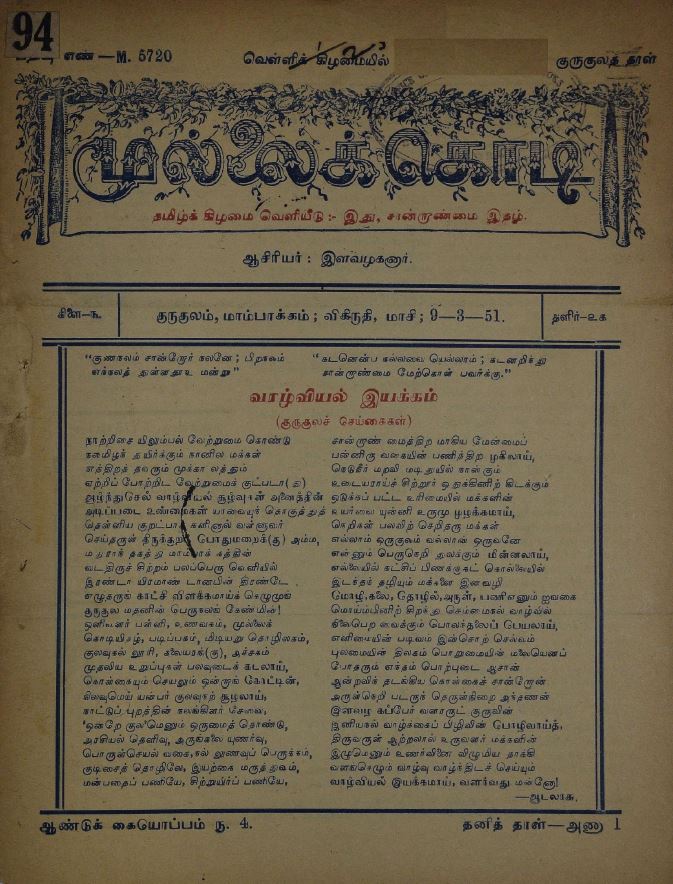 94
எண் —M. 5720
வெள்ளிக் கிழமையில்
குருகுலத் தாள்
முல்லைக்கொடி
தமிழ்க் கிழமை வெளியீடு :- இது, சான்றாண்மை இதழ்.
ஆசிரியர் : இளவழகனார்.
கிளை—௩.
குருகுலம், மாம்பாக்கம் ; விகிருதி, மாசி ; 9—3—51.
தளிர்—உக
“குணநலம் சான்றோர் நலனே ; பிறநலம்
எந்நலத் துள்ளதூஉ மன்று”
“கடனென்ப நல்லவை யெல்லாம் ; கடனறிந்து
சான்றாண்மை மேற்கொள் பவர்க்கு.”
வாழ்வியல் இயக்கம்
(குருகுலச் செய்கைகள்)
நாற்றிசை யிலும்பல் வேற்றுமை கொண்டு
தமைிழர் துயிர்க்கும் நானில மக்கள்
எத்திறத் தவரும் முக்கா லத்தும்
ஏற்றிப் போற்றிட வேற்றுமைக் குட்படா(து)
ஆழ்ந்துசெல் வாழ்வியல் சூழ்வுகள் அனைத்தின்
அடிப்படை உண்மைகள் யாவையுந் தொகுத்துத்
தெள்ளிய குறட்பாக் களினால் வள்ளுவர்
செய்தருள் திருக்குறள் பொதுமறைக்(கு) அம்ம,
மதுராந் தகத்து மாம்பாக் கத்தின்
வடதிருச் சிற்றம் பலப்பெரு வெளியில்
இரண்டா யிரமாண் டானபின் திரண்டே
எழுதருங் காட்சி விளக்கமாய்ச் செழுமுங்
குருகுல மதனின் பெருநலங் கேண்மின்!
ஒளிவளர் பள்ளி, உணவகம், முல்லைக்
கொடியிதழ், படிப்பகம், மிடியறு தொழிலகம்,
குலவுகல் லூரி, கலையரங்(கு), அச்சகம்
முதலிய உறுப்புகள் பலவுடைக் கடலாய்,
கொள்கையும் செயலும் ஒன்றாங் கோட்டின்,
நாட்டுப் புறத்தின் நலங்கிளர் சேவை,
‘ஒன்றே குல’மெனும் ஒருமைத் தொண்டு,
அரசியல் தெளிவு, அருங்கலை யுணர்வு,
பொருள்செயல் வகை,நல் லுணவுப் பெருக்கம்,
குடிசைத் தொழிலே, இயற்கை மருத்துவம்,
மன்பதைப் பணியே, சிற்றுயிர்ப் பணியே,
சான்றாண் மைத்திற மாகிய மேன்மைப்
பன்னிரு வகையின் பணித்திற முகிலாய்,
உடையராய்ச் சிற்றூர் ஒதுக்கினிற் கிடக்கும்
ஒடுக்கப் பட்ட உரிமையில் மக்களின்
உயர்வை யுன்னி உருமு முழக்கமாய்,
நெறிகள் பலவிற் செறிதரு மக்கள்
எல்லாம் ஒருகுலம் வல்லான் ஒருவனே
என்னும் பெருநெறி துலக்கும் மின்னலாய்,
எல்லையில் கட்சிப் பிணக்குகட் கொல்லையில்
மொழி,கலை, தொழில்,அருள், பணிஎனும் ஐவகை
மொய்ம்பினிற் சிறந்து செம்மைநல் வாழ்வில்
நிலைபெற வைக்கும் பொலந்தலைப் பெயலாய்,
எளிமையின் படிவம் இன்சொற் செல்வம்
புலமையின் திலகம் பொறுமையின் மலையெனப்
போதரும் எந்தம் பொற்புடை ஆசான்
ஆன்றவிந் தடங்கிய கொள்கைச் சான்றோன்
அருள்நெறி படருந் தெருள்நிறை அந்தணன்
இனியநல் வாழ்க்கைப் பிழிவின் பொழிவாய்த்,
திருவருள் ஆற்றலால் உருவளர் மக்களின்
இழுமெனும் உணர்வினை விழுமிய தாக்கி
வளஞ்செழும் வாழ்வு வாழ்ந்திடச் செய்யும்
வாழ்வியல் இயக்கமாய், வளர்வது மன்னோ!
—ஆடலரசு.
ஆண்டுக் கையொப்பம் ரூ. 4.
தனித் தாள்—அணா 1